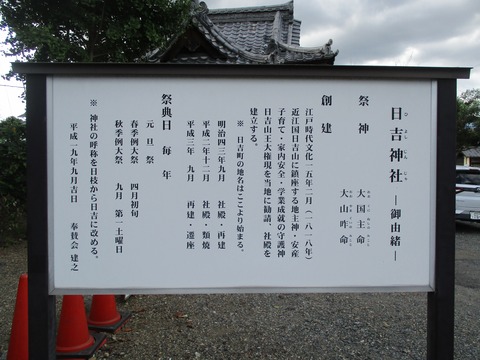 日吉神社 ―御由緒―
祭神 大国主命
大山咋命
創建
江戸時代文化一五年二月(一八一八年)
近江国日吉山に鎮座する地主神・安産
子育て・家内安全・学業成就の守護神
日吉山王大権現を当地に勧請、社殿を
建立する。
※ 日吉町の地名はここより始まる。
明治四三年九月 社殿・再建
平成二年十二月 社殿・類焼
平成三年 九月 再建・遷座
祭典日 毎年
元旦祭
春季例大祭 四月初旬
秋季例大祭 九月 第一土曜日
※ 神社の呼称を日枝から日吉に改める。
平成一九年九月吉日 奉賛会 建之